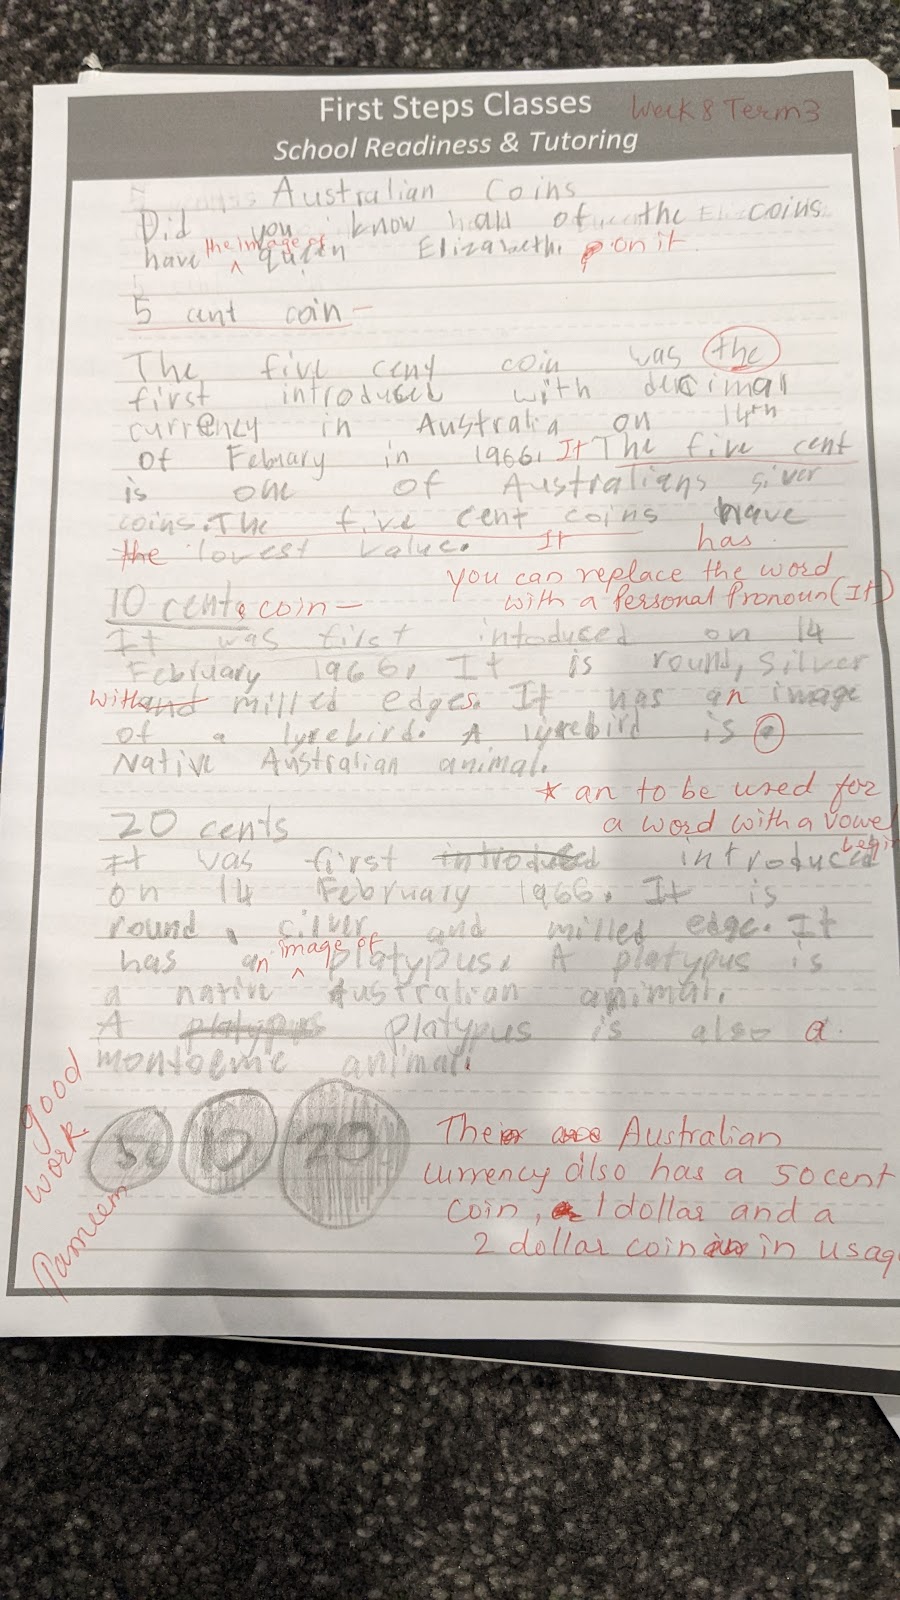 First Steps Classes Week 8 Term 3
School Readiness & Tutoring
Australian Coins
Did you know all of the coins
have the image of queen Elizabeth. on it
5 cent coin -
The five cent coin was the
first introduced with decimal
currency in Australia on 14th
Of February in 1966. It The five cent
is one of Australians silver
coins. The five cent coins have
the lowest value. It has.
you can replace the word
10 cents coin - with a Personal Pronoun (It)
It was first intoduced on 14
February 1966. It is round, silver
with and milled edges. It has an image
of a lyrebird. A lyrebird is a
Native Australian animal.
* an to be used for
20 cents a word with a vowel
begin
It was first introduced introduced
on 14 February 1966. It is
round, silver and milled edge. It
has an image of platypus. A platypus is
a native Australian animal.
A platypus Platypus is also a
montoeme animal.
5c 10 20
good
work
The Australian
currency also has a 50 cent
coin, 1 dollar and a
2 dollar coin in usag